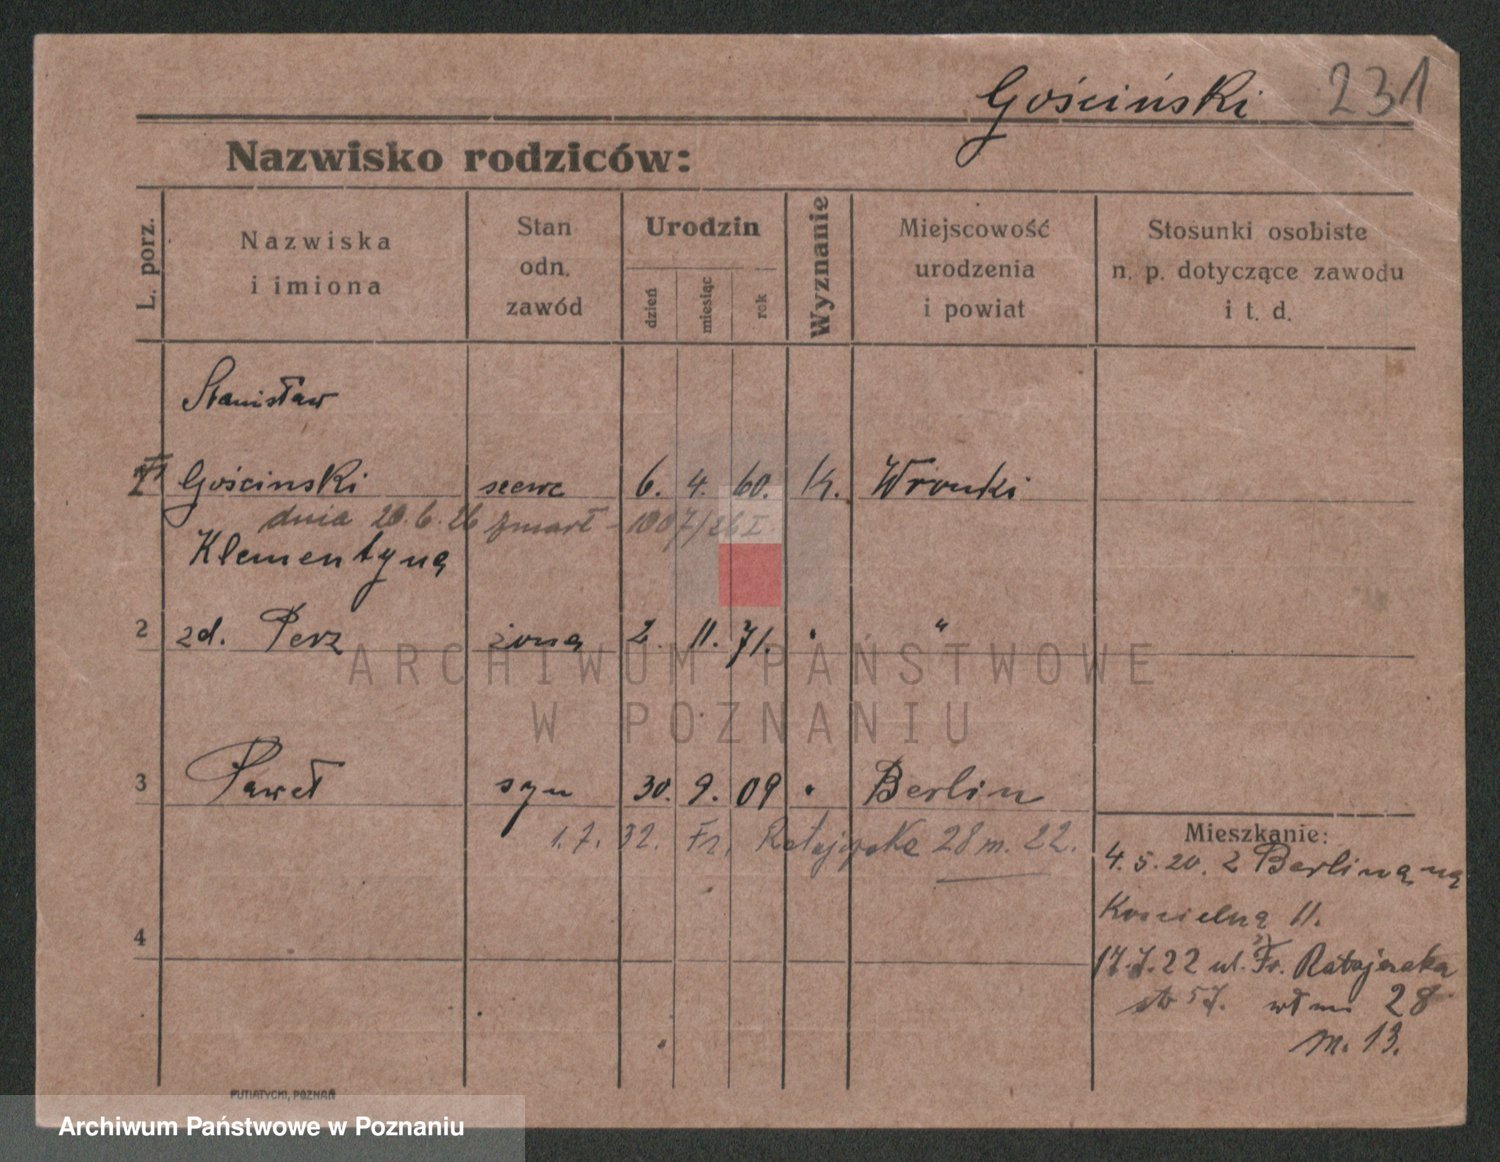 Gościński 231
Nazwisko rodziców:
L. porz.
Nazwiska
i imiona
Stan
odn.
zawód
Urodzin
dzień
miesiąc
rok
Wyznanie
Miejscowość
urodzenia
i powiat
Stosunki osobiste
n. p. dotyczące zawodu
i t. d.
Stanisław
Gościnski szewc 6. 4. 60. k. Wronki
dnia 20.6.26 zmarł - 1007/26 I
Klementyna
2 zd. Perz żona 2. 11. 71. " "
3 Paweł syn 30. 9. 09 " Berlin
1.7.32. Fr. Ratajczaka 28 m. 22.
Mieszkanie:
4.5.20. z Berlina na
Koscielna 11.
4
17.7.22 ul. Fr. Ratajczaka
57. 28
m. 13.
PUTIATYCKI, POZNAŃ
ARCHIWUM PAŃSTWOWE
W POZNANIU
Archiwum Państwowe w Poznaniu